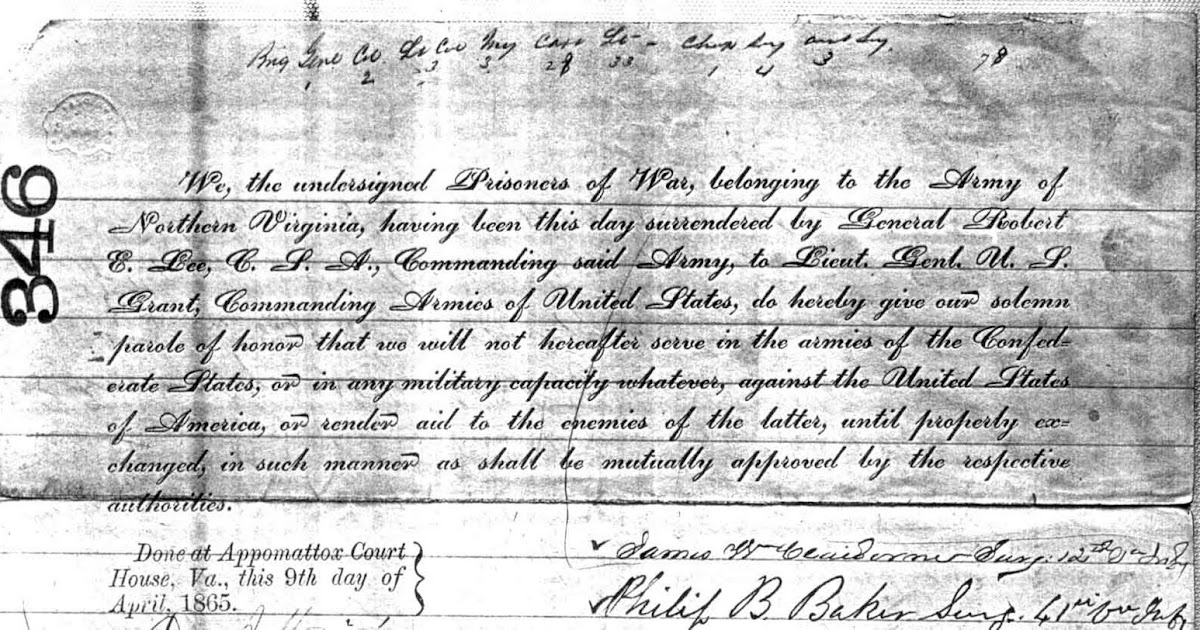 Brig Genl Col Lt Col Maj Capt Lt - Chap Surg asst Surg
1 2 3 3 28 33 1 4 3 78
346
We, the undersigned Prisoners of War, belonging to the Army of
Northern Virginia, having been this day surrendered by General Robert
E. Lee, C. S. A., Commanding said Army, to Lieut. Genl. U. S.
Grant, Commanding Armies of United States, do hereby give our solemn
parole of honor that we will not hereafter serve in the armies of the Confed-
erate States, or in any military capacity whatever, against the United States
of America, or render aid to the enemies of the latter, until properly ex-
changed, in such manner as shall be mutually approved by the respective
authorities.
Done at Appomattox Court
House, Va., this 9th day of
April, 1865.
James W Claiborne Surg. 12th Va Inf
Philip B. Baker Surg. 41st Va Inf